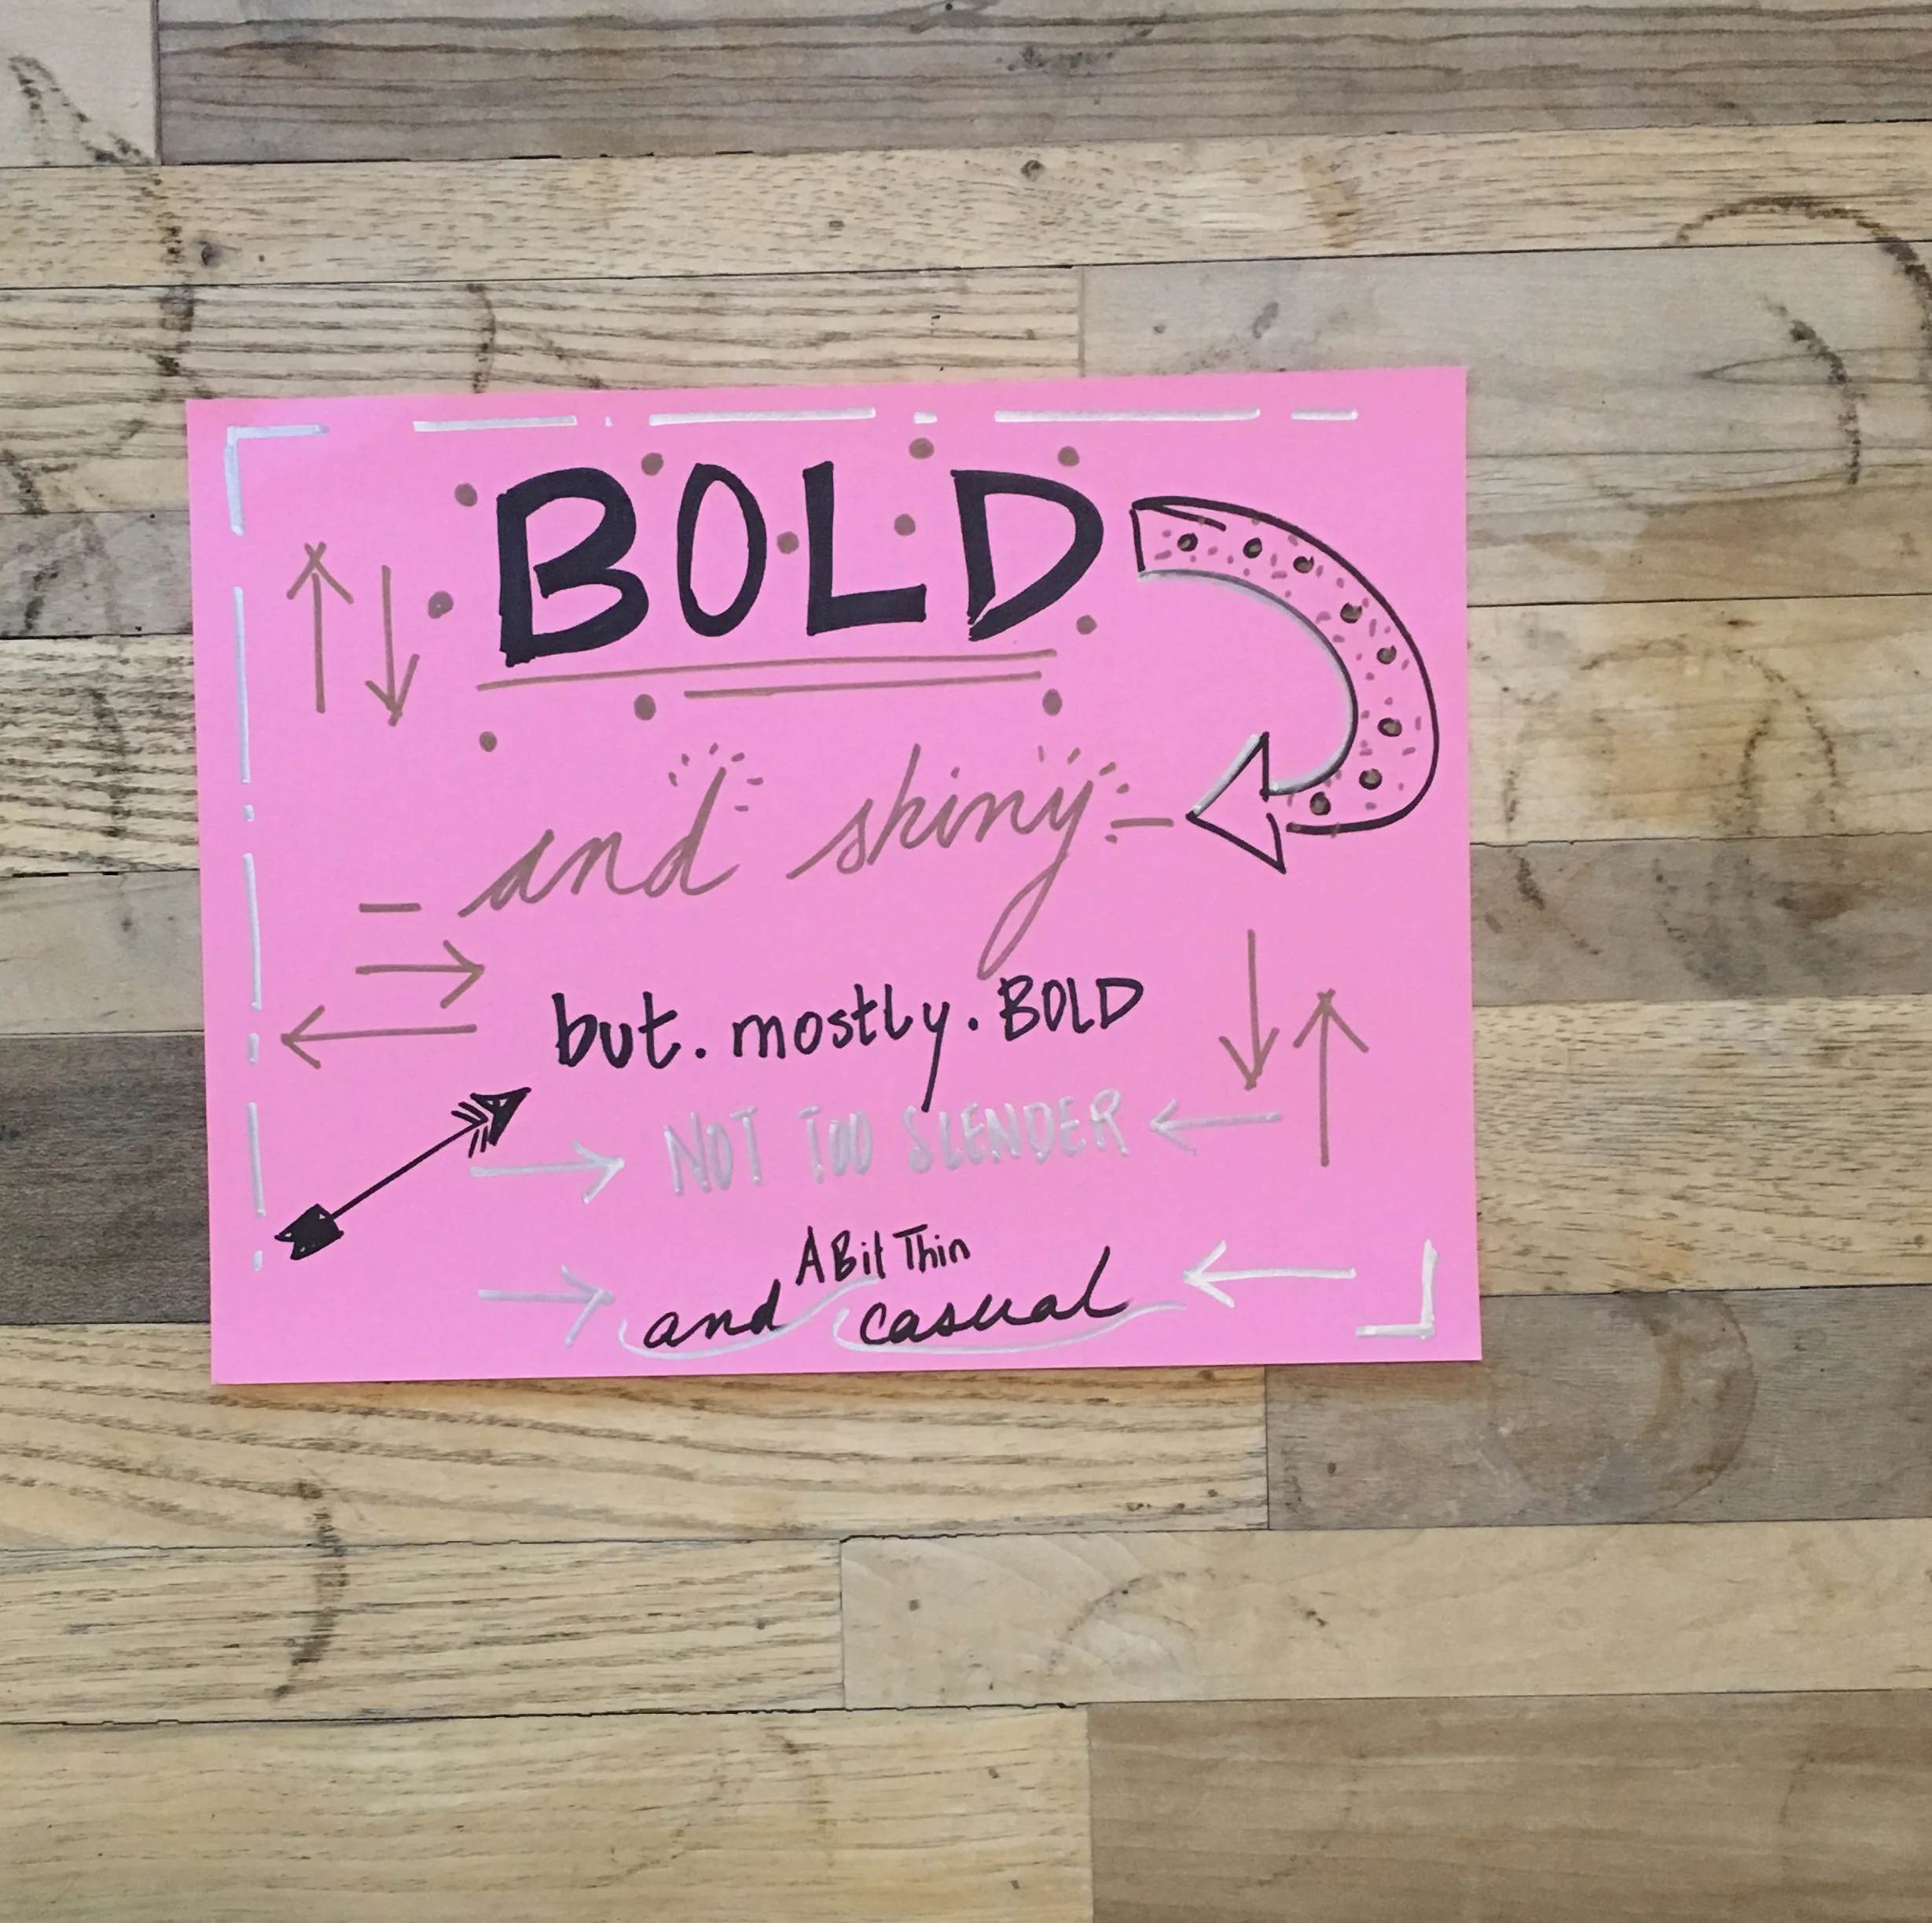 BOLD
and shiny
but. mostly. BOLD
NOT TOO SLENDER
A Bit Thin
and casual